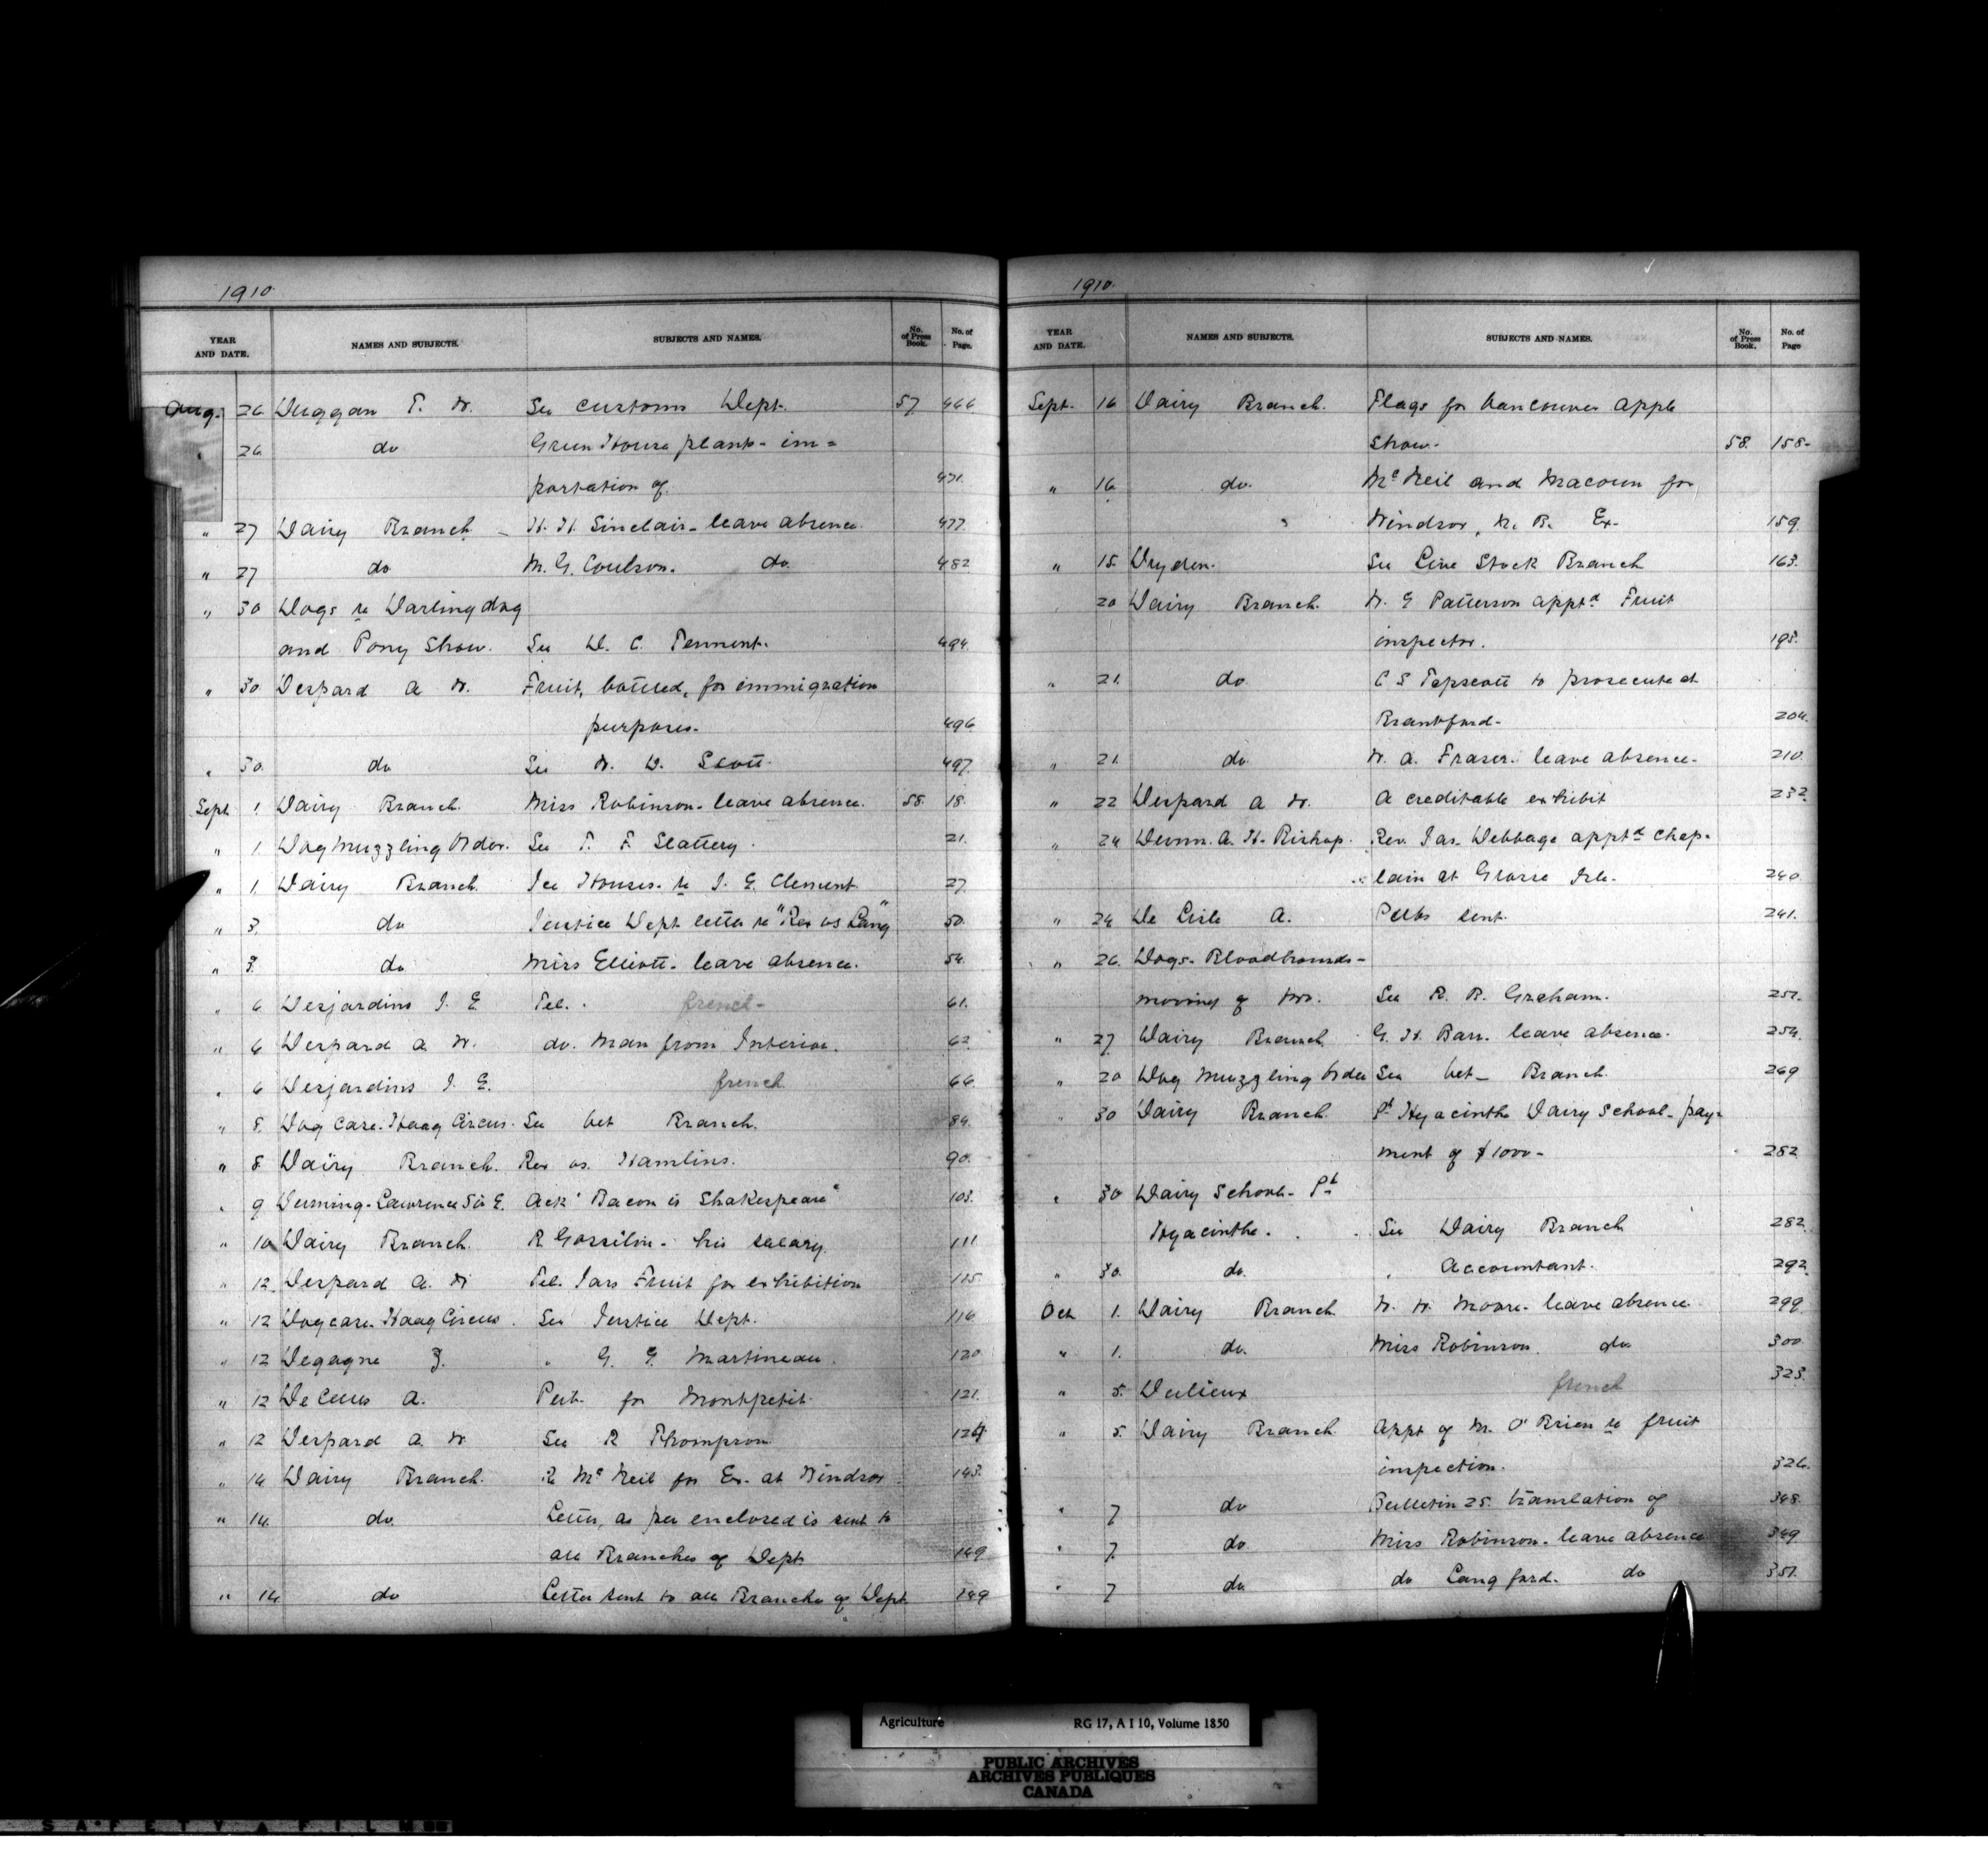 1910.
YEAR AND DATE. NAMES AND SUBJECTS. SUBJECTS AND NAMES. No. of Press Book. No. of Page.
Aug. 26 Duggan T. W. See Customs Dept. 57. 466
" 26. do Green House plants - im=
portation of. 471.
" 27 Dairy Branch - H. H. Sinclair - leave absence. 477.
" 27 do M. G. Coulson. do. 482
" 30 Dogs re Darling dog
and Pony Show. See D. C. Tennent. 494.
" 30 Despard A W. Fruit, bottled, for immigration
purposes. 496
" 30. do See W. D. Scott. 497.
Sept. 1. Dairy Branch. Miss Robinson - leave absence. 58. 18.
" 1. Dog Muzzling Order. See T. F. Slattery. 21.
" 1. Dairy Branch. Ice Houses - re J. E. Clement 27.
" 3. do Justice Dept letter re "Rex vs Lang" 50.
" 3. do Miss Elliott - leave absence. 54.
" 6 Desjardins J. E. Tel. french - 61.
" 6 Despard A. W. do. Man from Interior. 62.
" 6 Desjardins J. E. french 66.
" 8. Dog Case. Haag Circus. See Vet Branch. 84.
" 8. Dairy Branch. Rex vs. Hamlins. 90.
" 9 Durning-Lawrence Sir E. Ack "Bacon is Shakespeare" 103.
" 10 Dairy Branch. R Gosselin - his salary. 111.
" 12. Despard A. W Tel. Jars Fruit for exhibition 115.
" 12 Dog case. Haag Circus. See Justice Dept. 116
" 12 Degagne J. " G. G. Martineau. 120
" 12 De Celles A. Pub. for Montpetit. 121.
" 12 Despard A. W See R Thompson 124
" 14 Dairy Branch. R. McNeil for Ex. at Windsor. 143.
" 14. do. Letter, as per enclosed is sent to
all Branches of Dept 149
" 14. do Letter sent to all Branches of Dept. 149
1910.
YEAR AND DATE. NAMES AND SUBJECTS. SUBJECTS AND NAMES. No. of Press Book. No. of Page
Sept. 16 Dairy Branch. Flags for Vancouver Apple
Show. 58. 158-
" 16. do. McNeil and Macoun for
Windsor, N. B. Ex. 159.
" 15. Dryden. See Live Stock Branch 163.
20 Dairy Branch. W. G Patterson apptd Fruit
inspector. 195.
" 21. do C S Tapscott to prosecute at
Brantford - 204.
" 21. do. W. A. Fraser - leave absence. 210.
" 22 Despard A W. A creditable exhibit 232.
" 24 Dunn. A. H. Bishop. Rev. Jas. Debbage apptd Chap-
lain at Grosse Isle. 240.
" 24 De Lisle A. Pubs sent. 241.
" 26. Dogs - Bloodhounds -
moving of two. See R. B. Graham. 251.
" 27 Dairy Branch. G. H. Barr. leave absence. 254.
" 20 Dog Muzzling Order See Vet - Branch. 269
" 30 Dairy Branch. St Hyacinthe Dairy School - pay-
ment of $1000 - 282
" 30 Dairy School - St
Hyacinthe. See Dairy Branch 282.
" 30. do. " Accountant. 292.
Oct. 1. Dairy Branch W. W. Moore - leave absence 299.
" 1. do. Miss Robinson. do. 300.
" 5. Dulieux french 323.
" 5. Dairy Branch. Appt of M. O'Brien re fruit
inspection. 326.
" 7 do Bulletin 25. translation of 348.
" 7. do Miss Robinson - leave absence 349
" 7 do do Langford. do 351.
Agriculture RG 17, A I 10, Volume 1850
PUBLIC ARCHIVES
ARCHIVES PUBLIQUES
CANADA